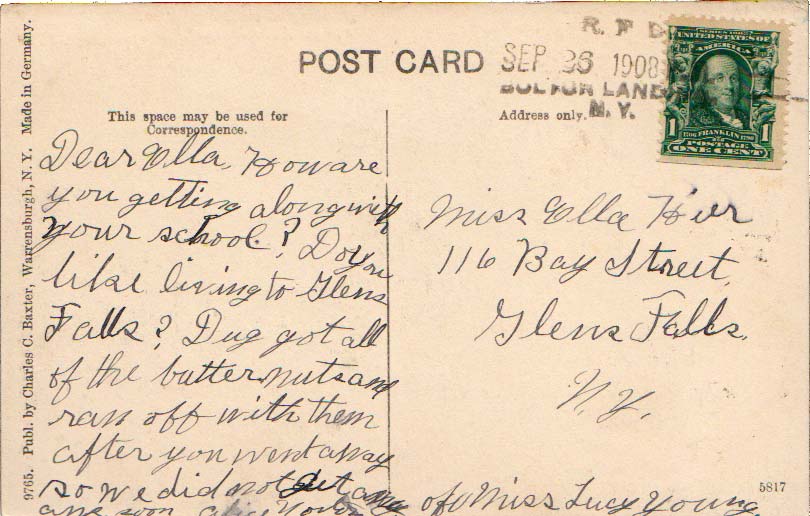 POST CARD
R. F. D.
SEP 26 1908
BOLTON LAND
N. Y.
SERIES 1902
UNITED STATES OF
AMERICA
1706 FRANKLIN 1790
1 POSTAGE 1
ONE CENT
This space may be used for
Correspondence.
Address only.
Dear Ella, How are
you getting along with
your school? Do you
like living to Glens
Falls? Dug got all
of the butternuts and
ran off with them
after you went away
so we did not get any
of Miss Lucy Young
soon
Miss Ella
116 Bay Street,
Glens Falls,
N.Y.
9765. Publ. by Charles C. Baxter, Warrensburgh, N. Y. Made in Germany.
5817